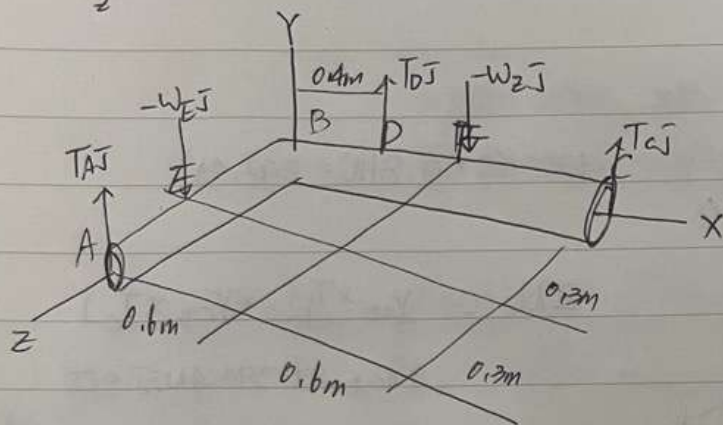 Z
Y
0.4m
TDJ
-WZJ
-WEJ
B
D
E
F
TCJ
C
TAJ
A
X
Z
0.6m
0.6m
0.3m
0.3m